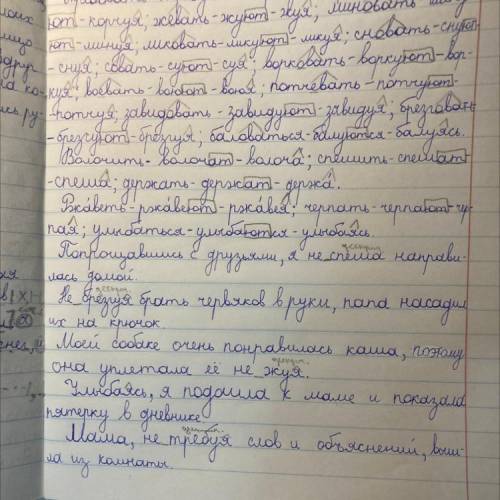 ют - корчуя; жевать - жуют - жуя; миновать
ют - минуя; ликовать - ликуют - ликуя; сновать - снуют
- снуя; совать - суют - суя; ворковать - воркуют - вор-
куя; воевать - воюют - воюя; потчевать - потчуют -
- потчуя; завидовать - завидуют - завидуя; брезговать
- брезгуют - брезгуя; баловаться - балуются - балуясь.
Волочить - волочат - волоча; спешить - спешат -
- спеша; держать - держат - держа.
Ржаветь - ржавеют - ржавея; черпать - черпают - чер-
пая; улыбаться - улыбаются - улыбаясь.
Попрощавшись с друзьями, я не спеша направи-
лась домой.
Не брезгуя брать червяков в руки, папа насадил
их на крючок.
Моей собаке очень понравилась каша, поэтому
она уплетала её не жуя.
Улыбаясь, я подошла к маме и показала
пятерку в дневнике.
Мама, не требуя слов и объяснений, выш-
ла из комнаты.